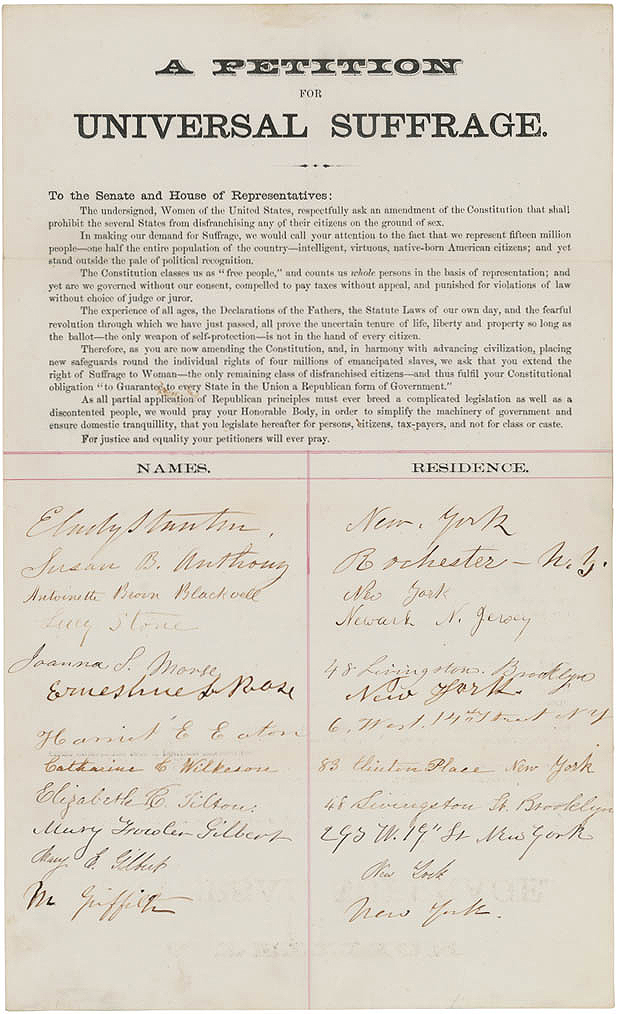 A PETITION
FOR
UNIVERSAL SUFFRAGE.
To the Senate and House of Representatives:
The undersigned, Women of the United States, respectfully ask an amendment of the Constitution that shall
prohibit the several States from disfranchising any of their citizens on the ground of sex.
In making our demand for Suffrage, we would call your attention to the fact that we represent fifteen million
people—one half the entire population of the country—intelligent, virtuous, native-born American citizens; and yet
stand outside the pale of political recognition.
The Constitution classes us as "free people," and counts us whole persons in the basis of representation; and
yet are we governed without our consent, compelled to pay taxes without appeal, and punished for violations of law
without choice of judge or juror.
The experience of all ages, the Declarations of the Fathers, the Statute Laws of our own day, and the fearful
revolution through which we have just passed, all prove the uncertain tenure of life, liberty and property so long as
the ballot—the only weapon of self-protection—is not in the hand of every citizen.
Therefore, as you are now amending the Constitution, and, in harmony with advancing civilization, placing
new safeguards round the individual rights of four millions of emancipated slaves, we ask that you extend the
right of Suffrage to Woman—the only remaining class of disfranchised citizens—and thus fulfil your Constitutional
obligation "to Guarantee to every State in the Union a Republican form of Government."
As all partial application of Republican principles must ever breed a complicated legislation as well as a
discontented people, we would pray your Honorable Body, in order to simplify the machinery of government and
ensure domestic tranquillity, that you legislate hereafter for persons, citizens, tax-payers, and not for class or caste.
For justice and equality your petitioners will ever pray.
NAMES. RESIDENCE.
ECadyStanton. New. York
Susan B. Anthony Rochester - N.Y.
Antoinette Brown Blackwell New York
Lucy Stone Newark N. Jersey
Joanna S. Morse 48 Livingston. Brooklyn
Ernestine L Rose New York.
Harriet E Eaton 6. West. 14th Street N Y
Catharine C Wilkeson 83 Clinton Place New York
Elizabeth R. Tilton. 48 Livingston St. Brooklyn
Mary Fowler Gilbert 293 W. 19" St New York
Mary E. Gilbert New York
M Griffith New York.